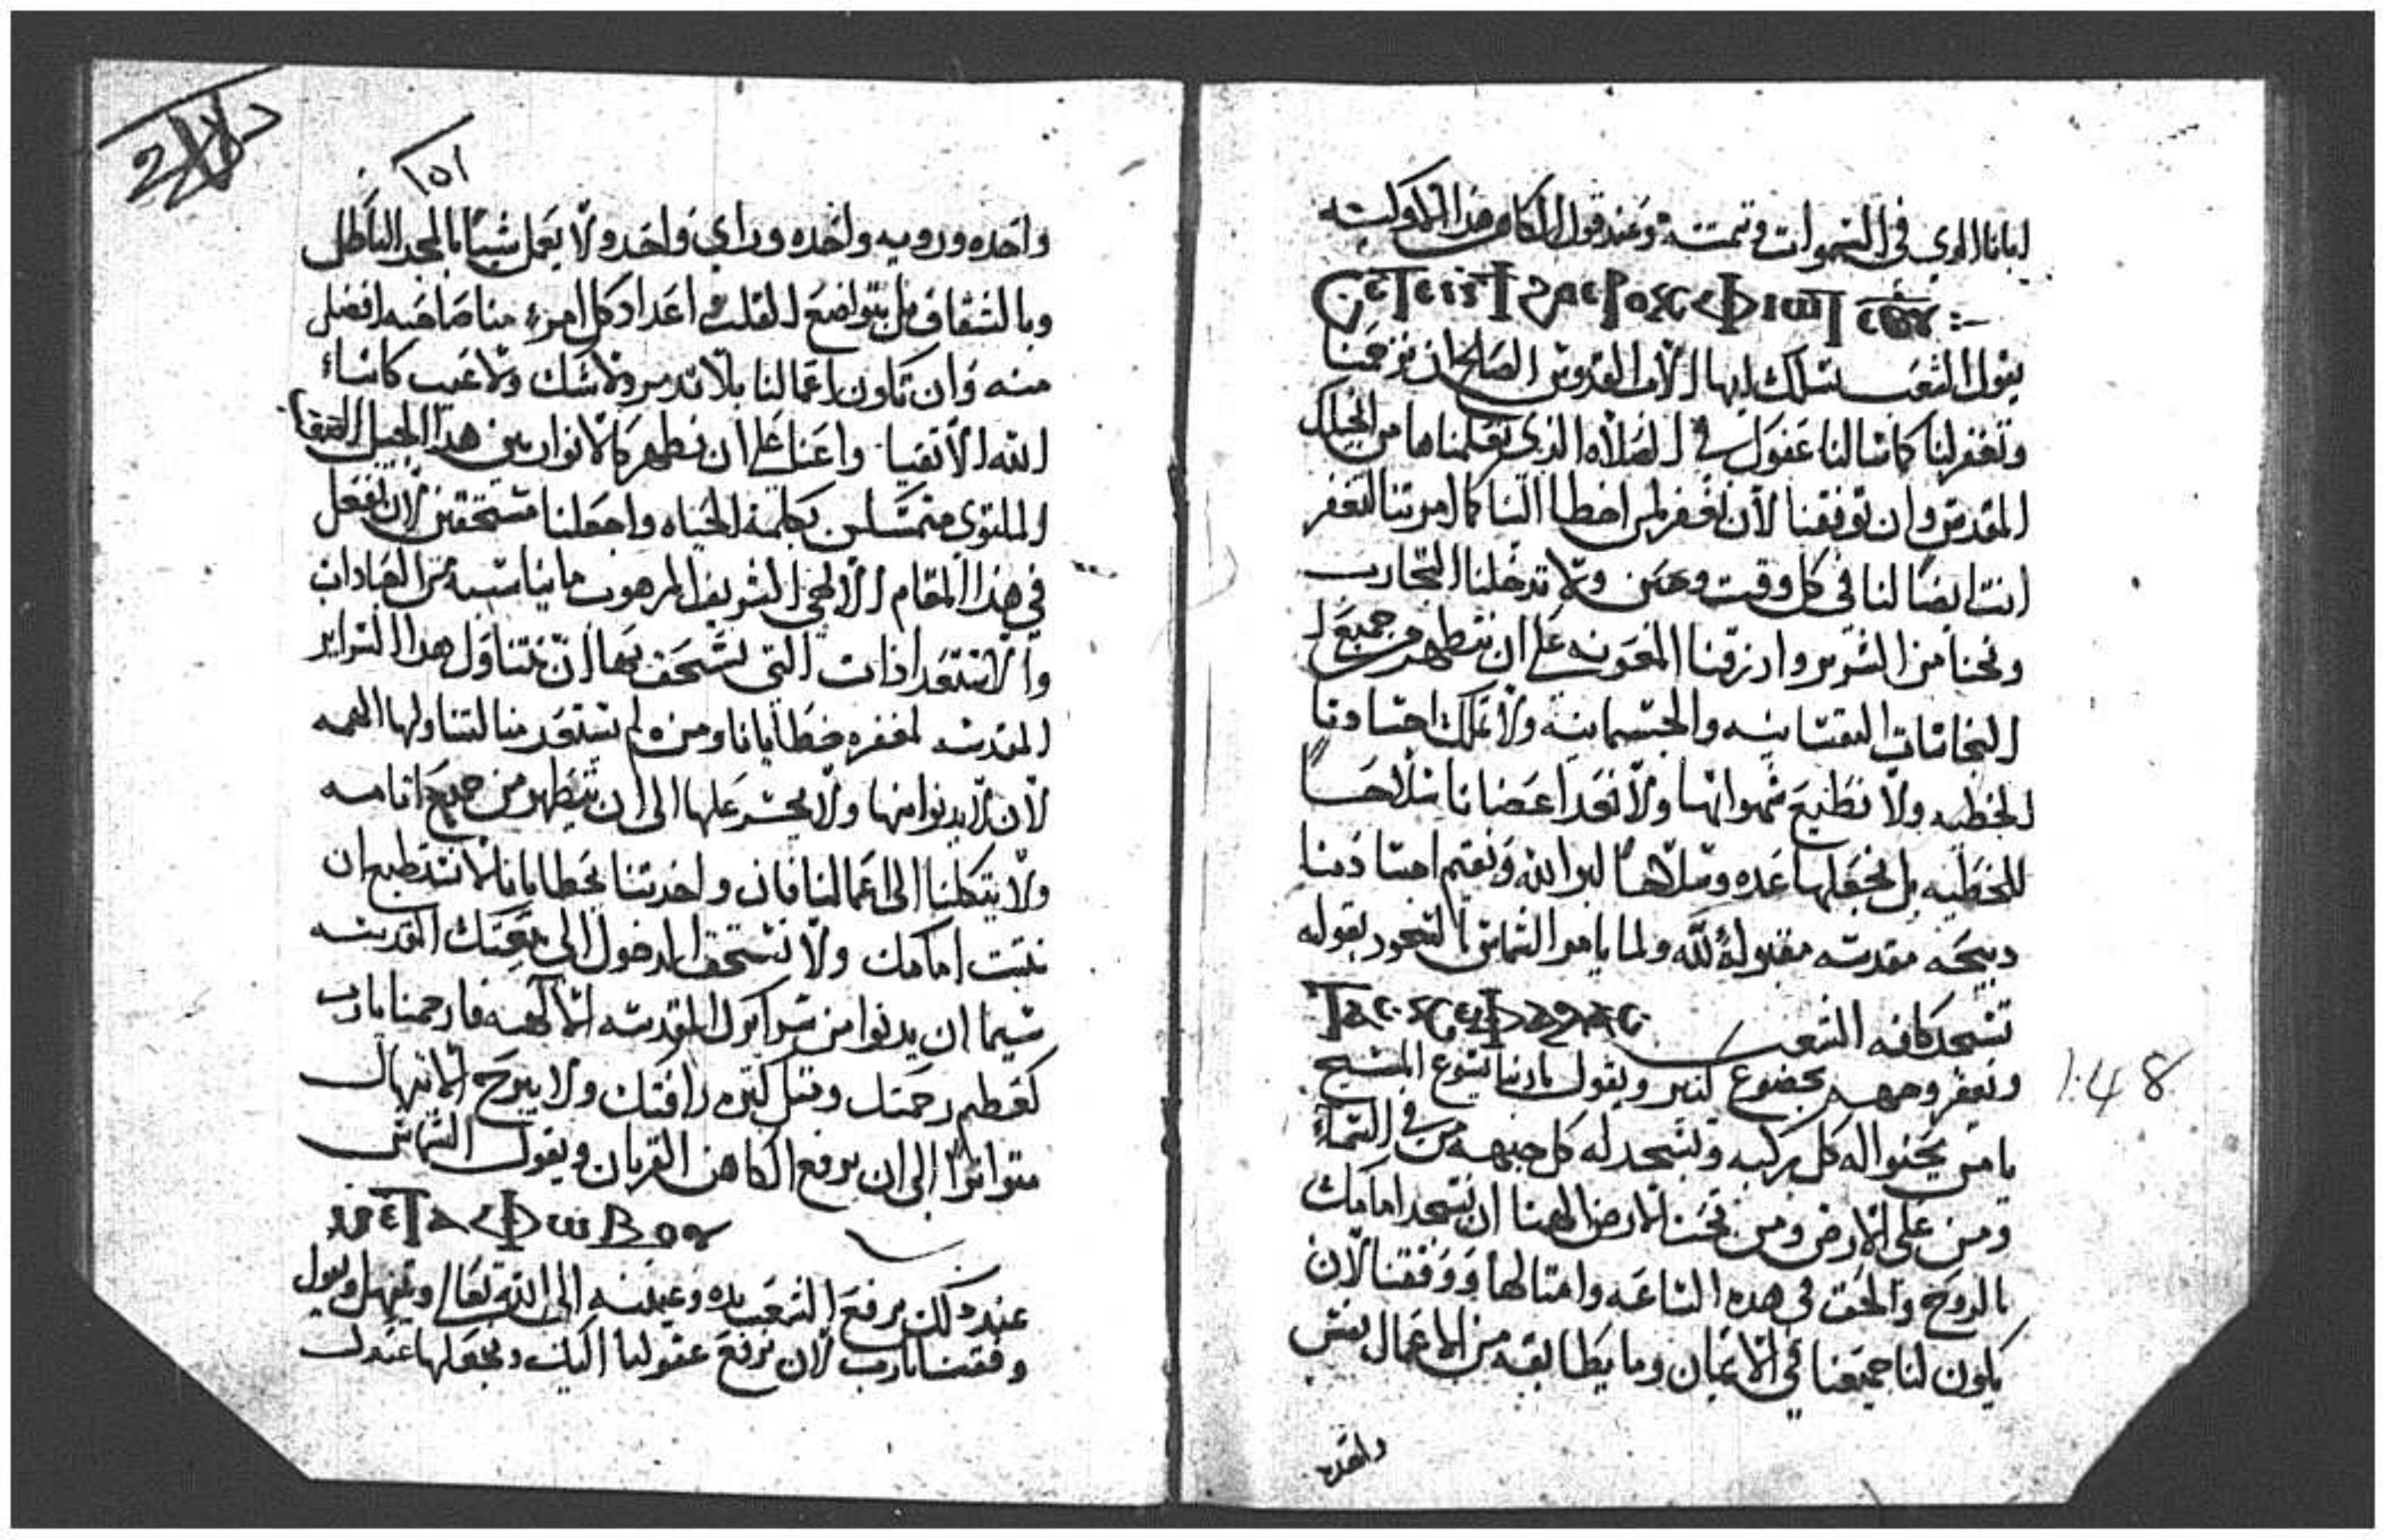 ابانا الدي في السموات وتمته وعند قول الكاهن هدا
يقول الشعب نسلك ايها الاب القدوس الصالح ان ترحمنا
وتغفر لنا كاتنا لنا عفوك في الصلاه الدي تعلمناها من انجيلك
المقدس وان توفقنا لان نغفر لمن اخطا الينا كما امرتنا لتغفر
انت ايضا لنا في كل وقت وحين ولا تدخلنا التجارب
ونجنا من الشرير وارزقنا المعونه على ان نتطهر من جميع ا
النجاسات النفسانيه والجسمانيه ولا تملك اجسادنا
الخطيه ولا نطيع شهواتها ولا نعد اعضانا سلاحا
للخطيه بل نجعلها عده وسلاحا لبر الله ونقيم اجسادنا
دبيحه مقدسه مقبوله لله ولما يامر الشماس بالسجود بقوله
تسجد كافه الشعب
ونعفر وجههم بخضوع كتير ويقول ياربنا يسوع المسيح
يا من يحنوا له كل ركبه وتسجد له كل جبهه من في السماء
ومن على الارض ومن تحت الارض الهنا ان نسجد امامك
بالروح والحق في هده الساعه وامتالها ووفقنا لان
يكون لنا جميعنا في الايمان وما يطابقه من الاعمال نفس
واحده
148
١٥١
واحده وروييه واحده وراي واحد ولا يعمل شيا بالمجد الباطل
وبالشقاق بل بتواضع القلب اعداد كل امرء منا صاحبه افضل
منه وان تكون اعمالنا بلا تدمر ولا شك ولا عيب كابناء
الله الاتقيا واعنا على ان نظهر كالانوار بين هدا الجيل
الملتوي متمسكين بكلمة الحياه واجعلنا مستحقين لان نفعل
في هدا المقام الالهي الشريف المرهوب ما يناسبه من العبادات
والاستعدادات التي نستحق بها ان نتناول هدا السراير
المقدسه لمغفره خطايانا ومن لم يستعد منا لتناولها الهمه
لان لا يدنوا منها ولا يجسر عليها الى ان يتطهر من جميع اتامه
ولا يتكلنا الى اعمالنا فان واخدتنا بخطايانا لا نستطيع ان
نتبت امامك ولا نستحق الدخول الى بيعتك المقدسه
سيما ان يدنوا من سرايرك المقدسه الالهيه فارحمنا يارب
كعظيم رحمتك ومتل كتره رافتك ولا يبرح الابتهال
متواترا الى ان يرفع الكاهن القربان ويقول الشماس
ⲙⲉⲧⲁ ⲫⲱⲃⲟⲩ
عند دلك يرفع الشعب يده وعينيه الى الله تعالى ويبتهل ويقول
وفقنا يارب لان نرفع عقولنا اليك ونجعلها عندك